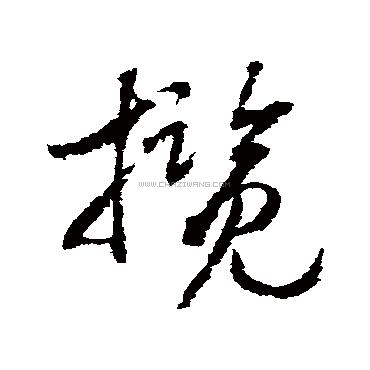 揽
WWW.CHAZIWANG.COM